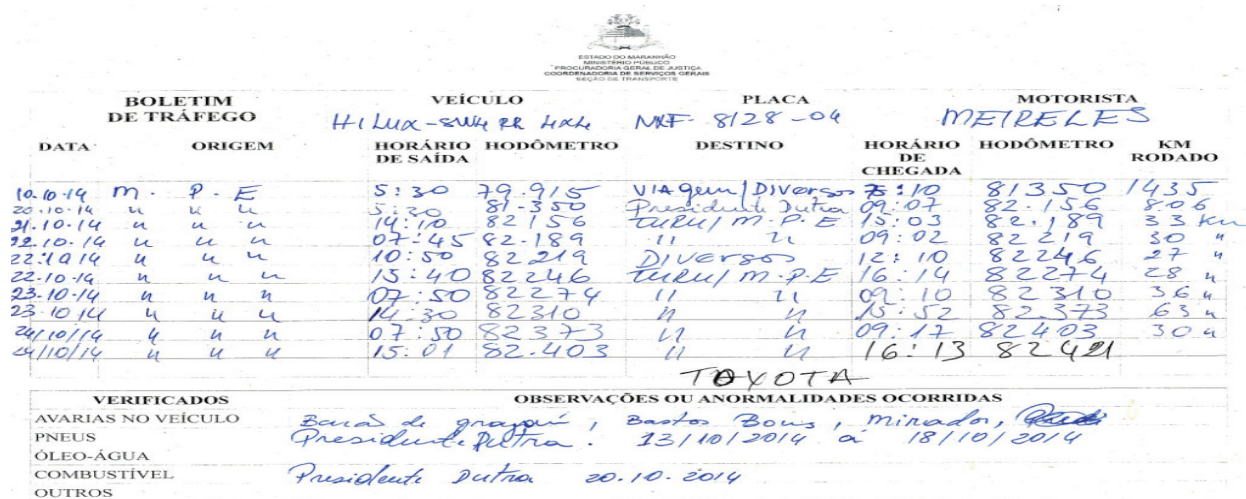 ESTADO DO MARANHÃO
MINISTÉRIO PÚBLICO
PROCURADORIA GERAL DE JUSTIÇA
COORDENADORIA DE SERVIÇOS GERAIS
SEÇÃO DE TRANSPORTE
BOLETIM DE TRÁFEGO VEÍCULO PLACA MOTORISTA
HILUX-SW4 RR 4X4 NXF-8128-04 MEIRELES
DATA ORIGEM HORÁRIO DE SAÍDA HODÔMETRO DESTINO HORÁRIO DE CHEGADA HODÔMETRO KM RODADO
10.10.14 M. P. E 5:30 79.915 VIAgem/DIVersos :10 81350 1435
20.10.14 u u u 5:30 81-350 Presidente Dutra 09:07 82.156 806
21.10.14 u u u 14:10 82156 TURU/M.P.E 15:03 82.189 33 Km
22.10.14 u u u 07:45 82.189 11 11 09:02 82219 30 "
22.10 14 u u u 10:50 82219 DIVersos 12:10 82246 27 "
22-10-14 u u u 15:40 82246 TURU/M.P.E 16:14 82274 28 u
23-10-14 u u u 07:50 82274 11 11 09:10 82310 36 u
23-10 14 u u u 14:30 82310 u u 15:52 82.373 63 u
24/10/14 u u u 07.50 82373 u u 09:17 82403 30 u
24/10/14 u u u 15:01 82.403 11 u 16:13 82421
TOYOTA
VERIFICADOS OBSERVAÇÕES OU ANORMALIDADES OCORRIDAS
AVARIAS NO VEÍCULO Barão de grajaú, Bastos Bons, Mirador,
PNEUS Presidente Dutra. 13/10/2014 a 18/10/2014
ÓLEO-ÁGUA
COMBUSTÍVEL Presidente Dutra 20.10.2014
OUTROS